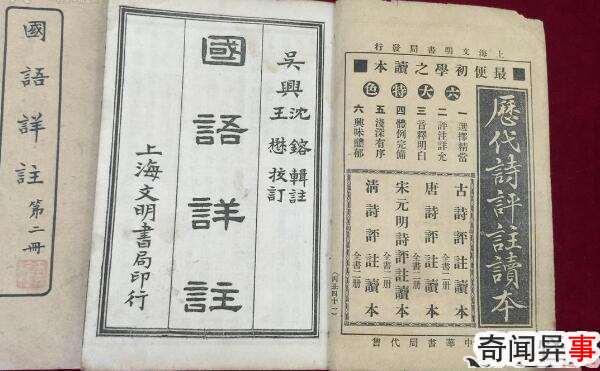 國語詳註 第二冊
吳興沈鎔輯註
王懋校訂
國語詳註
上海文明書局印行
上海文明書局發行
最便初學之讀本
六大特色
一 選擇精當
二 評注詳允
三 音釋明白
四 體例完備
五 淺深有序
六 興味醲郁
歷代詩評註讀本
古詩評註讀本 全書二冊
唐詩評註讀本 全書二冊
宋元明詩評註讀本 全書二冊
清詩評註讀本 全書二冊
中華書局代售
奇闻异事